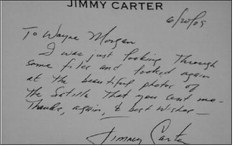 JIMMY CARTER
6/20/05
To Wayne Morgan
I was just looking through
some files and looked again
at the beautiful photos of
the that you sent me.
Thanks, again, & best wishes
Jimmy Carter